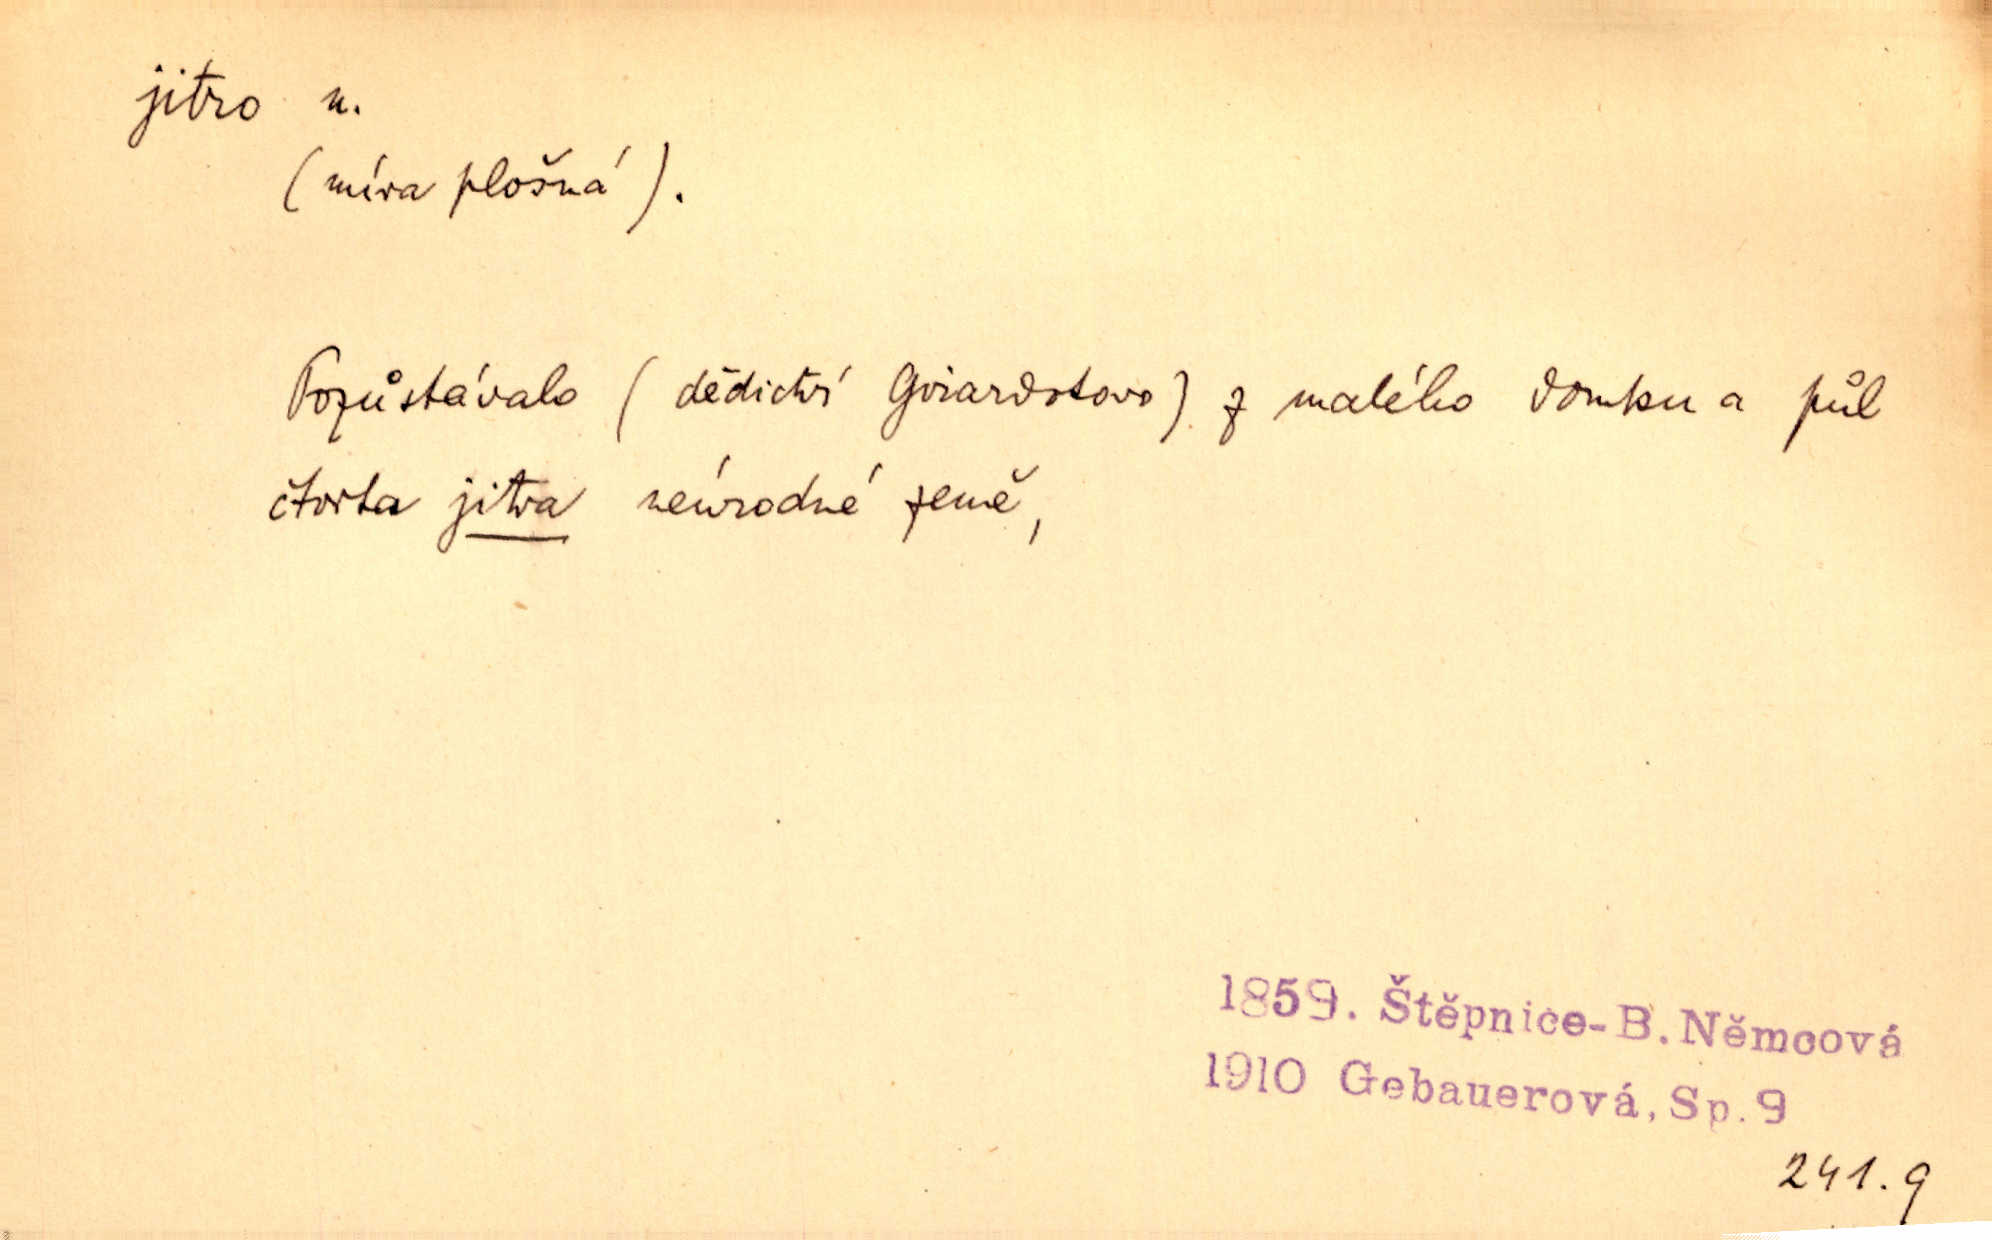 jitro n.
(míra plošná).
Pozůstávalo (dědictví Goiardotovo) z malého domku a půl
čtvrta jitra neúrodné země,
1859. Štěpnice-B. Němcová
1910 Gebauerová, Sp. 9
241. 9